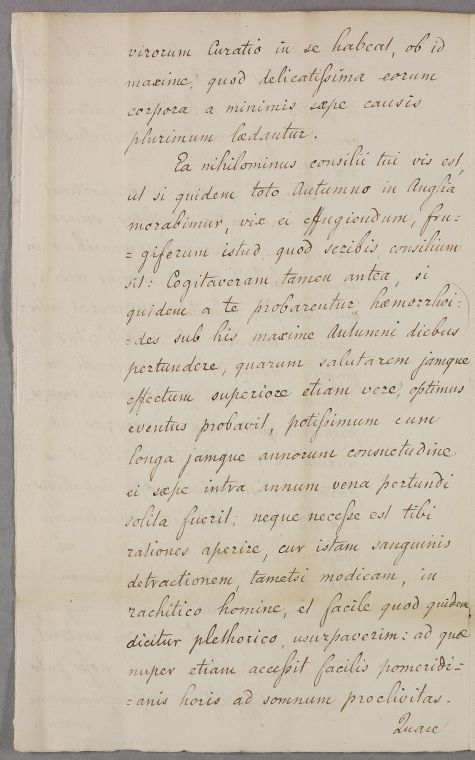 virorum Curatio in se habeat, ob id
maxime, quod delicatissima eorum
corpora a minimis sæpe causis
plurimum lædantur.
Ea nihilominus consilii tui vis est,
ut si quidem toto Autumno in Angliâ
morabimur, vix ei effugiendum, fru-
=giferum istud, quod scribis, consilium
sit: Cogitaveram tamen antea, si
quidem a te probarentur, hæmorrhoi-
=des sub his maxime Autumni diebus
pertundere, quarum salutarem jamque
effectum superiore etiam vere, optimus
eventus probavit, potissimum cum
longa jamque annorum consuetudine
ei sæpe intra annum vena pertundi
solita fuerit; neque necesse est tibi
rationes aperire, cur istam sanguinis
detractionem, tametsi modicam, in
rachitico homine, et facile quod quidem
dicitur plethorico, usurpaverim: ad quæ
nuper etiam accessit facilis pomeridi=
=anis horis ad somnum proclivitas.
Quare